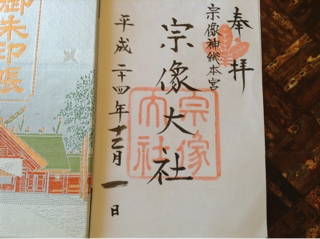 奉拝
宗像神総本宮
宗像大社
宗像大社
平成二十四年十二月一日
御朱印帳